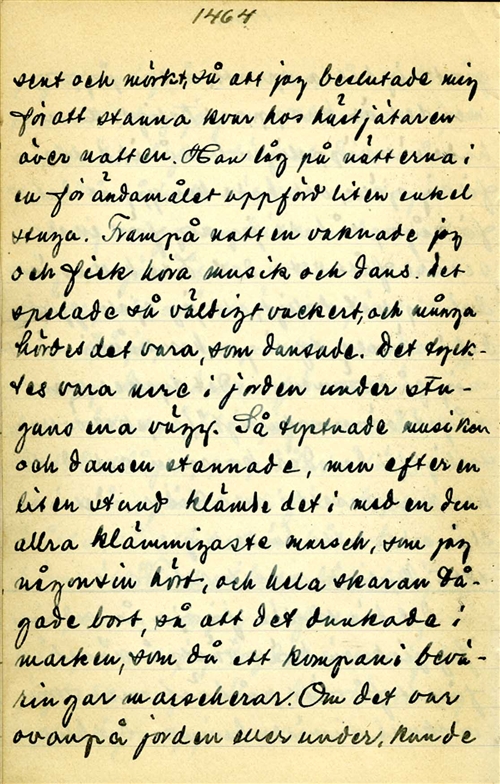 1464
sent och mörkt, så att jag beslutade mig
för att stanna kvar hos hästjätaren
över natten. Han låg på nätterna i
en för ändamålet uppförd liten enkel
stuga. Frampå natten vaknade jag
och fick höra musik och dans. Det
spelade så väldigt vackert, och många
hördes det vara, som dansade. Det tyck-
tes vara nere i jorden under stu-
gans ena vägg. Så tystnade musiken
och dansen stannade, men efter en
liten stund klämde det i med en den
allra klämmigaste marsch, som jag
någonsin hört, och hela skaran tå-
gade bort, så att det dunkade i
marken, som då ett kompani bevä-
ringar marscherar. Om det var
ovanpå jorden eller under, kunde